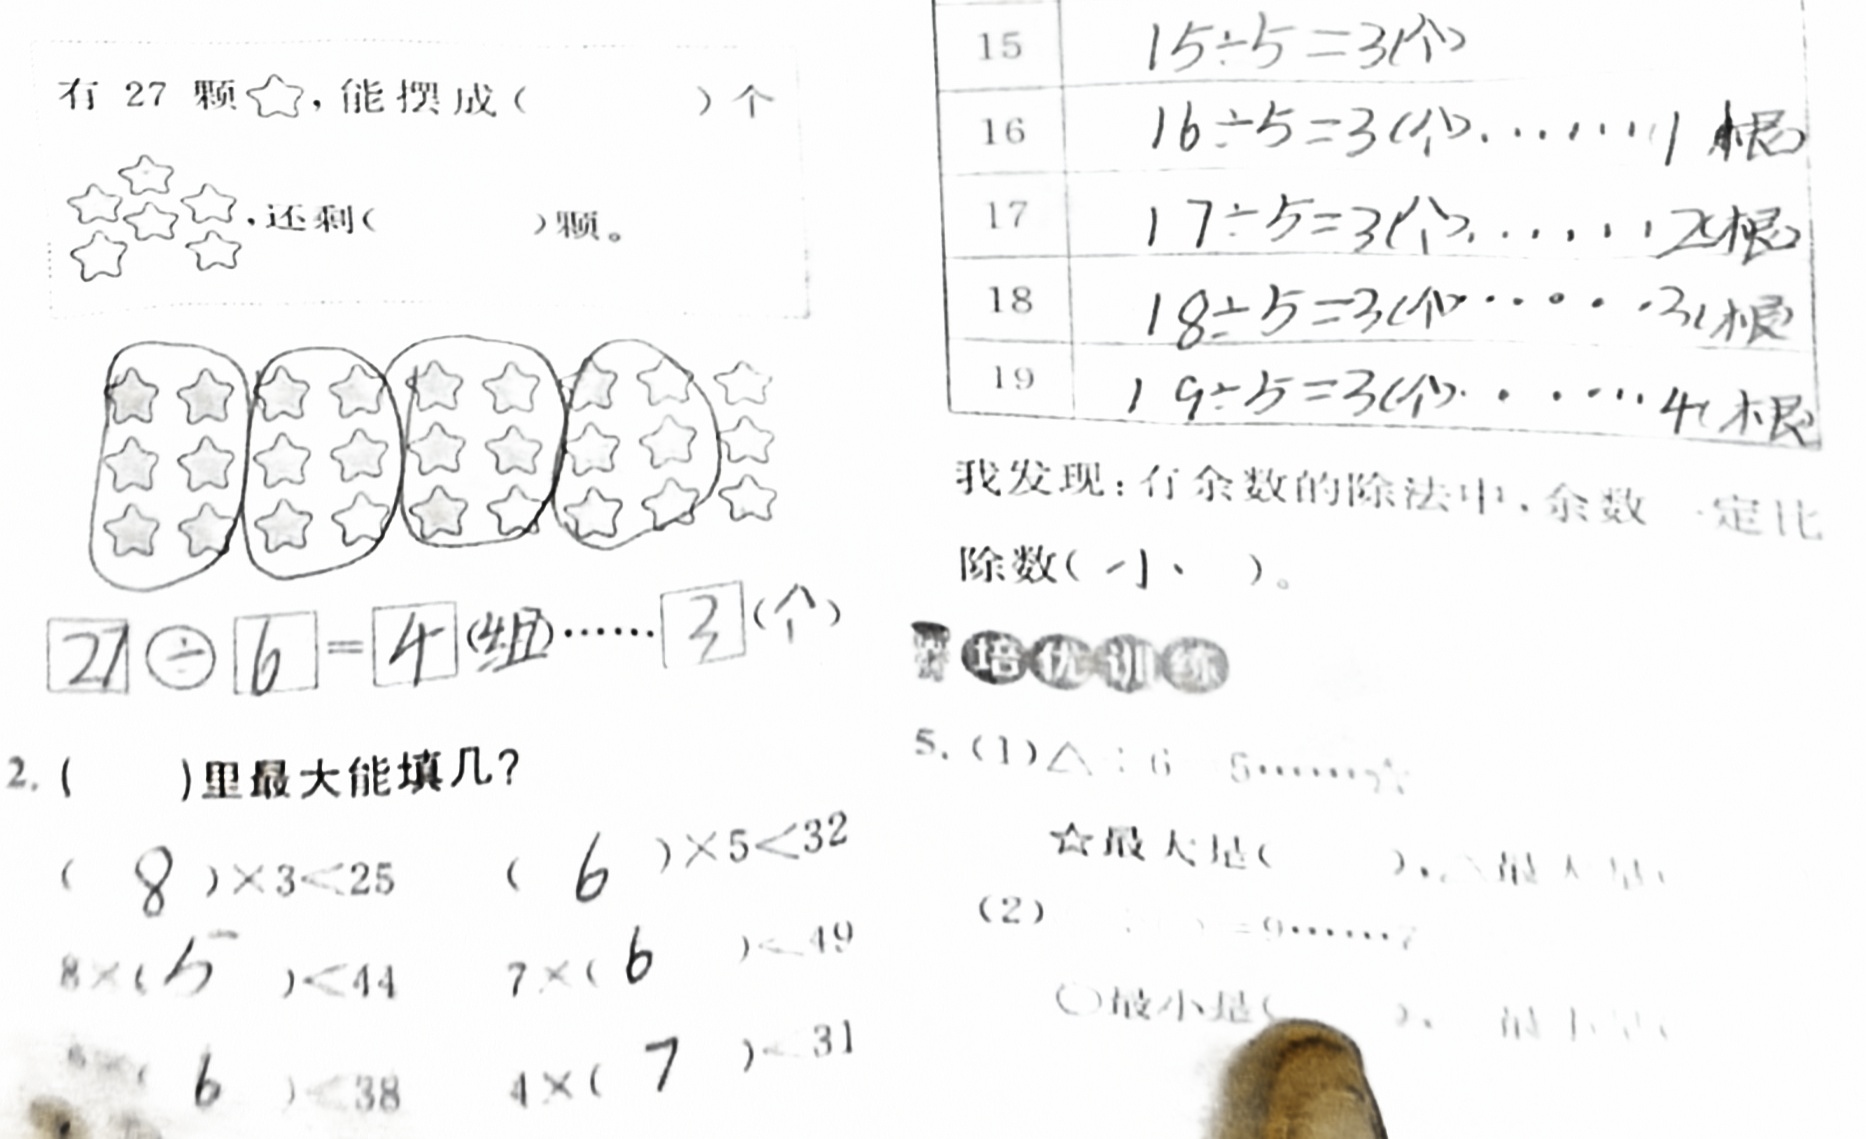 有 27 颗☆,能摆成( )个
,还剩( )颗。
27÷6=4(组)……3(个)
2.( )里最大能填几?
(8)×3<25 (6)×5<32
8×(5)<44 7×(6)<49
(6)<38 4×(7)<31
15 15÷5=3(个)
16 16÷5=3(个)……1(根)
17 17÷5=3(个)……2(根)
18 18÷5=3(个)……3(根)
19 19÷5=3(个)……4(根)
我发现:有余数的除法中,余数一定比
除数(小)。
培优训练
5.(1)△÷6=5……☆
☆最大是( ),△最大是(
(2) =9……7
○最小是( ), 最小是(